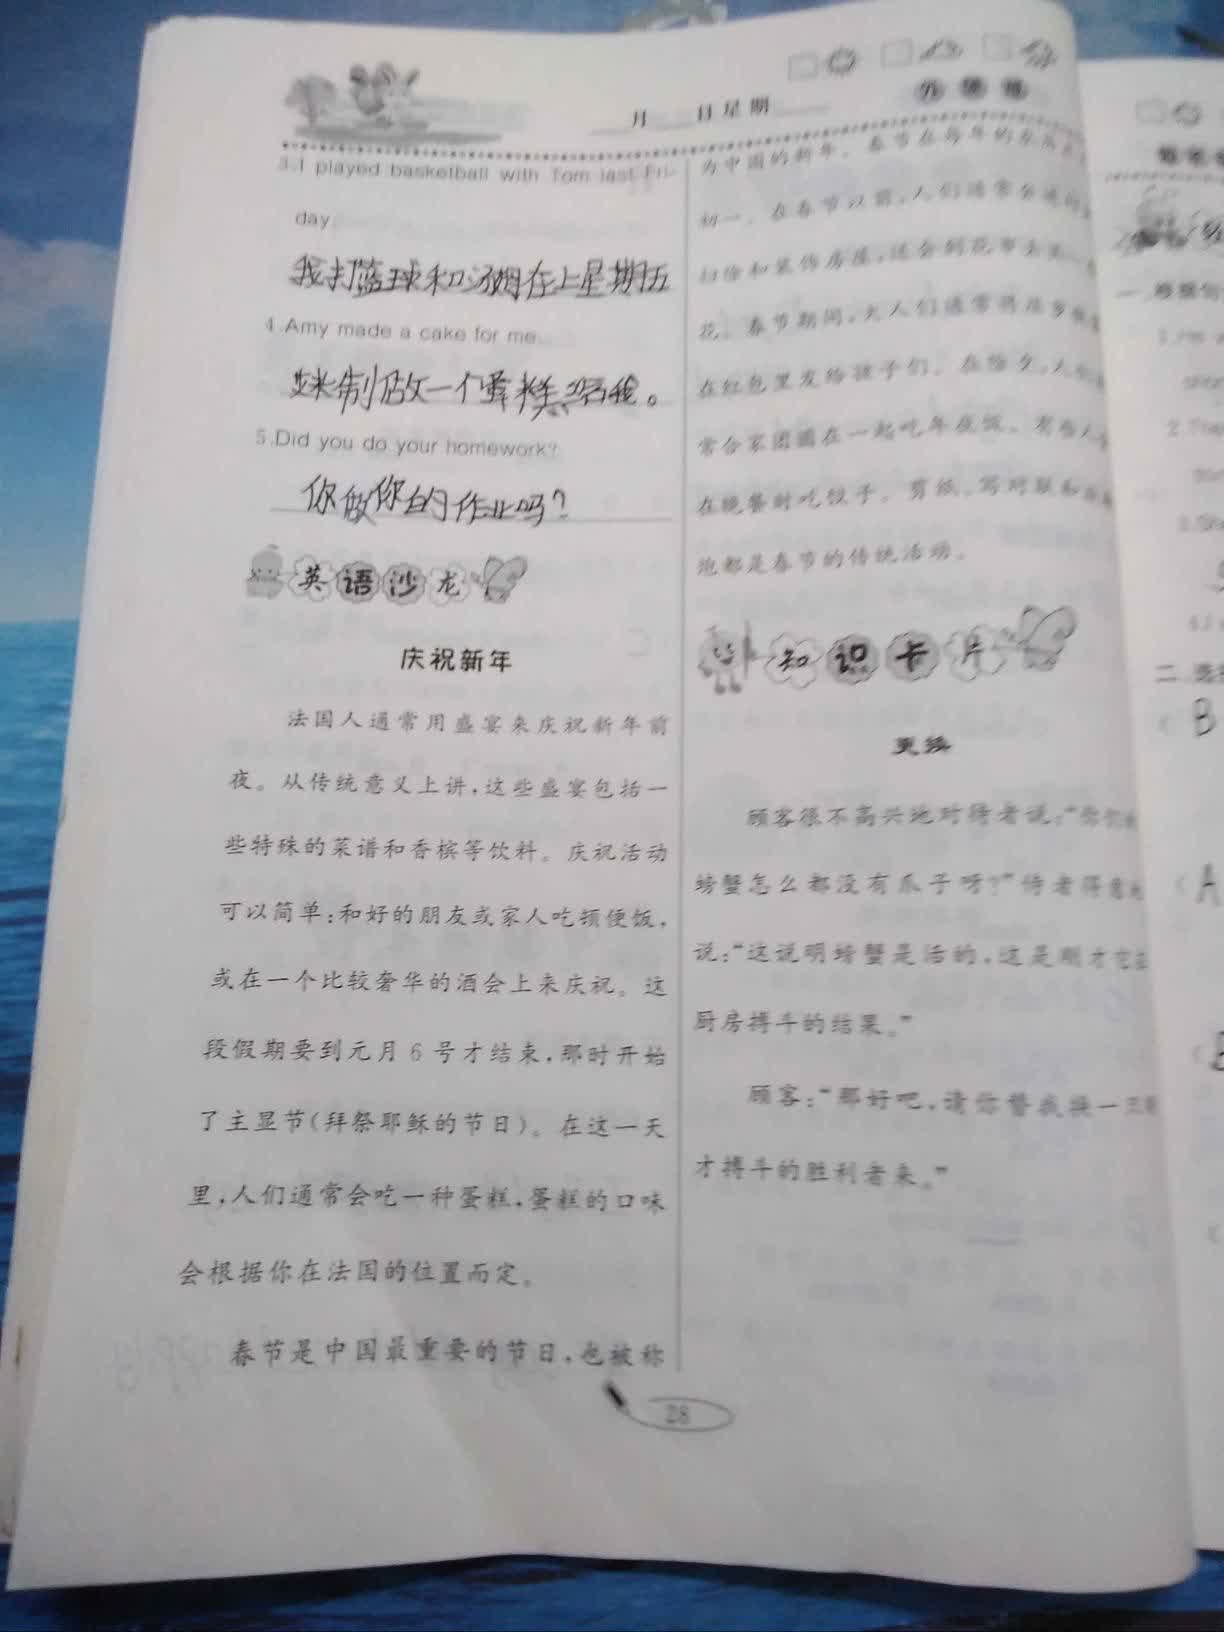 月 日 星期
3.I played basketball with Tom last Fri-
day.
我打篮球和汤姆在上星期五
4.Amy made a cake for me.
制做一个蛋糕给我。
5.Did you do your homework?
你做你的作业吗?
英语沙龙
庆祝新年
法国人通常用盛宴来庆祝新年前
夜。从传统意义上讲,这些盛宴包括一
些特殊的菜谱和香槟等饮料。庆祝活动
可以简单:和好的朋友或家人吃顿便饭,
或在一个比较奢华的酒会上来庆祝。这
段假期要到元月6号才结束,那时开始
了主显节(拜祭耶稣的节日)。在这一天
里,人们通常会吃一种蛋糕,蛋糕的口味
会根据你在法国的位置而定。
春节是中国最重要的节日,也被称
为中国的新年。春节在每年的农历
初一。在春节以前,人们通常会
扫除和装饰房屋,还会到花市去
花。春节期间,大人们通常将压岁
在红包里发给孩子们。在除夕,人
常合家团圆在一起吃年夜饭。有些人
在晚餐时吃饺子。剪纸、写对联和
炮都是春节的传统活动。
知识卡片
更换
顾客很不高兴地对待者说:“你们
螃蟹怎么都没有爪子呀?”侍者得意
说:“这说明螃蟹是活的,这是刚才它
厨房搏斗的结果。”
顾客:“那好吧,请你替我换一
才搏斗的胜利者来。”
28
一、根据句
二、选
B
A